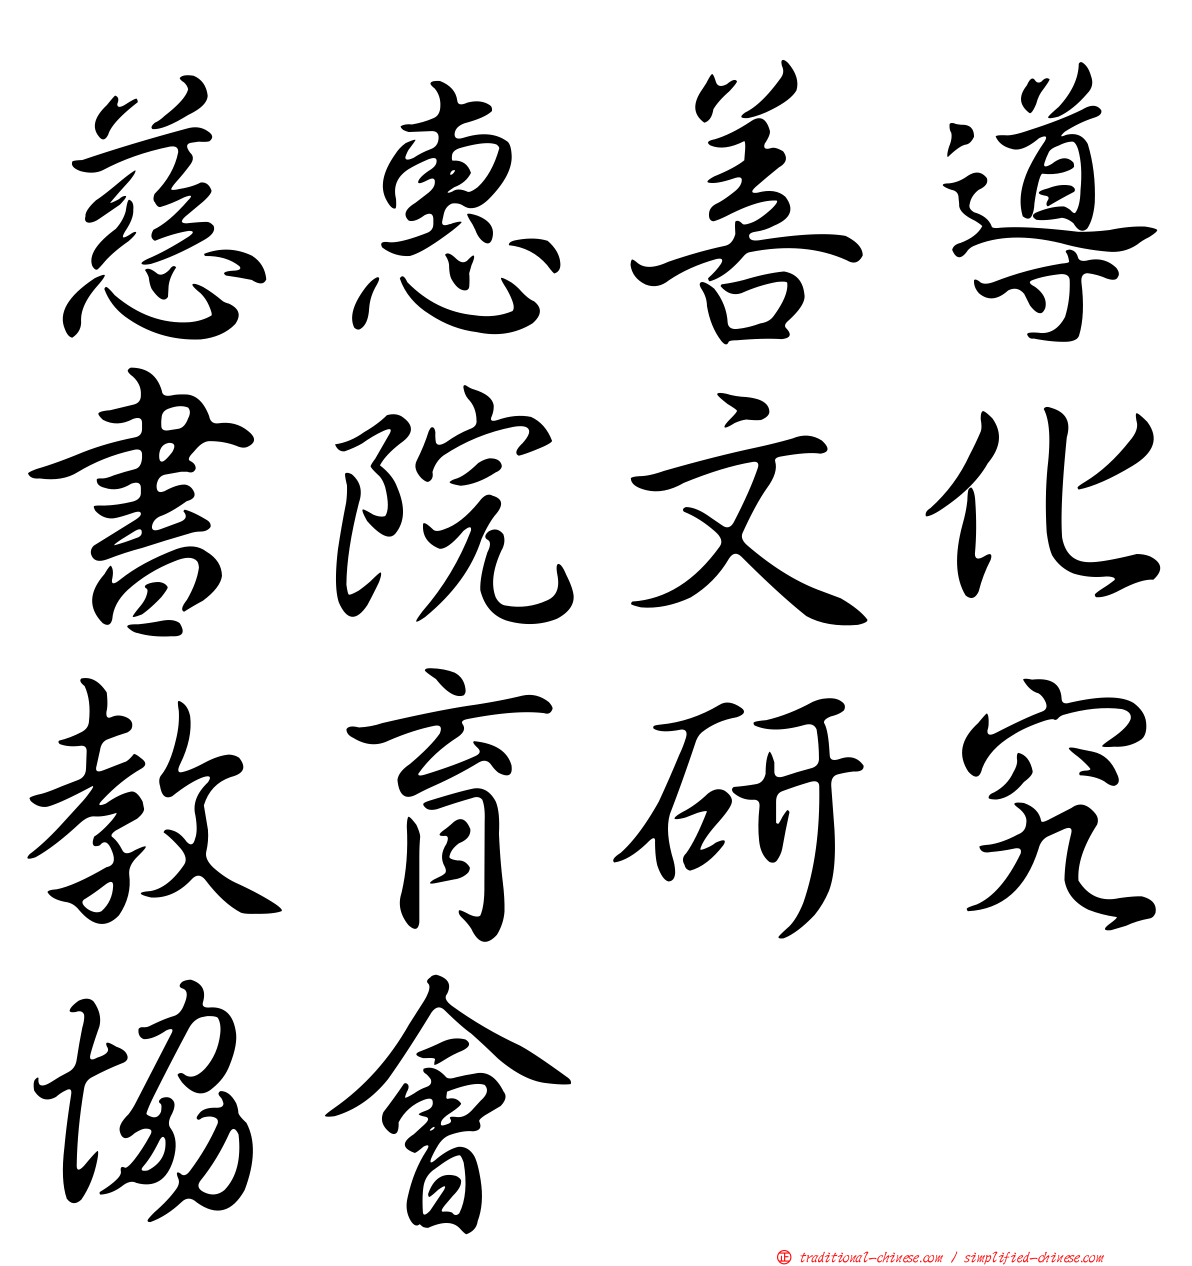 慈惠善導
書院文化
教育研究
協會
㊣ traditional-chinese.com / simplified-chinese.com